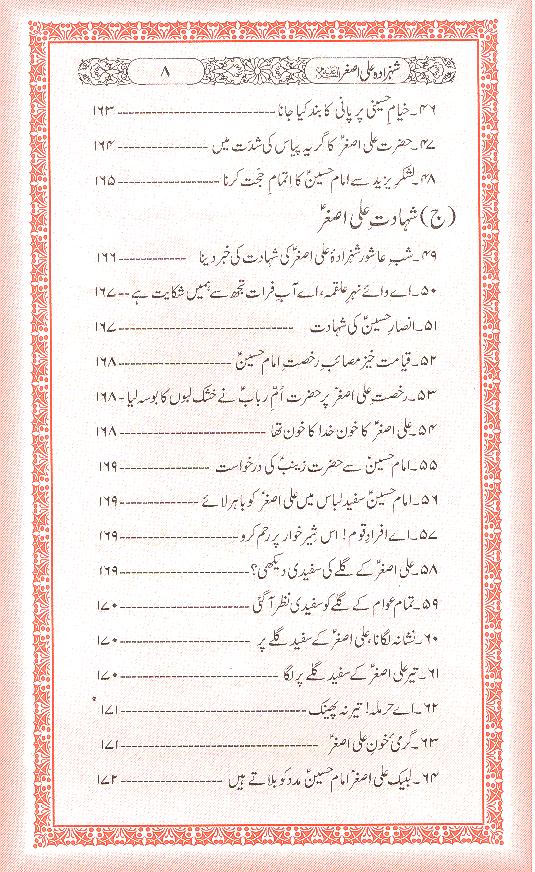 شہزادہ علی اصغرؑ ۸
۴۶۔ خیامِ حسینی پر پانی کا بند کیا جانا ---------- ۱۶۳
۴۷۔ حضرت علی اصغرؑ کا گریہ پیاس کی شدّت میں ---------- ۱۶۴
۴۸۔ لشکرِ یزید سے امام حسینؑ کا اتمامِ حجّت کرنا ---------- ۱۶۵
(ج) شہادتِ علی اصغرؑ
۴۹۔ شبِ عاشور شہزادۂ علی اصغرؑ کی شہادت کی خبر دینا ---------- ۱۶۶
۵۰۔ اے وائے نہرِ علقمہ، اے آبِ فرات تجھ سے ہمیں شکایت ہے -- ۱۶۷
۵۱۔ انصارِ حسینؑ کی شہادت ---------- ۱۶۷
۵۲۔ قیامت خیز مصائب رخصتِ امام حسینؑ ---------- ۱۶۸
۵۳۔ رخصتِ علی اصغرؑ پر حضرت اُمِّ ربابؑ نے خشک لبوں کا بوسہ لیا - ۱۶۸
۵۴۔ علی اصغرؑ کا خون خدا کا خون تھا ---------- ۱۶۸
۵۵۔ امام حسینؑ سے حضرت زینبؑ کی درخواست ---------- ۱۶۹
۵۶۔ امام حسینؑ سفید لباس میں علی اصغرؑ کو باہر لائے ---------- ۱۶۹
۵۷۔ اے افرادِ قوم! اس شِیر خوار پر رحم کرو ---------- ۱۶۹
۵۸۔ علی اصغرؑ کے گلے کی سفیدی دیکھی؟ ---------- ۱۶۹
۵۹۔ تمام عوام کے گلے کو سفیدی نظر آ گئی ---------- ۱۷۰
۶۰۔ نشانہ لگانا، علی اصغرؑ کے سفید گلے پر ---------- ۱۷۰
۶۱۔ تیر علی اصغرؑ کے سفید گلے پر لگا ---------- ۱۷۰
۶۲۔ اے حرملہ! تیر نہ پھینک ---------- ۱۷۱
۶۳۔ گرمیٔ خونِ علی اصغرؑ ---------- ۱۷۱
۶۴۔ لبیک علی اصغرؑ امام حسینؑ مدد کو بلاتے ہیں ---------- ۱۷۲